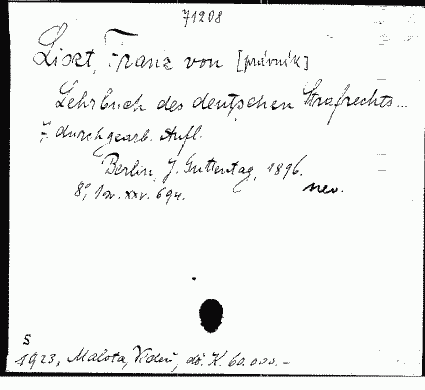 71208
Liszt, Franz von [právník]
Lehrbuch des deutschen Strafrechts...
7. durchgearb. Aufl.
Berlin, J. Guttentag, 1896.
8°, 1 sv. xxv. 694. nev.
S
1923, Malota, Vídeň, dř. K. 60.000.-